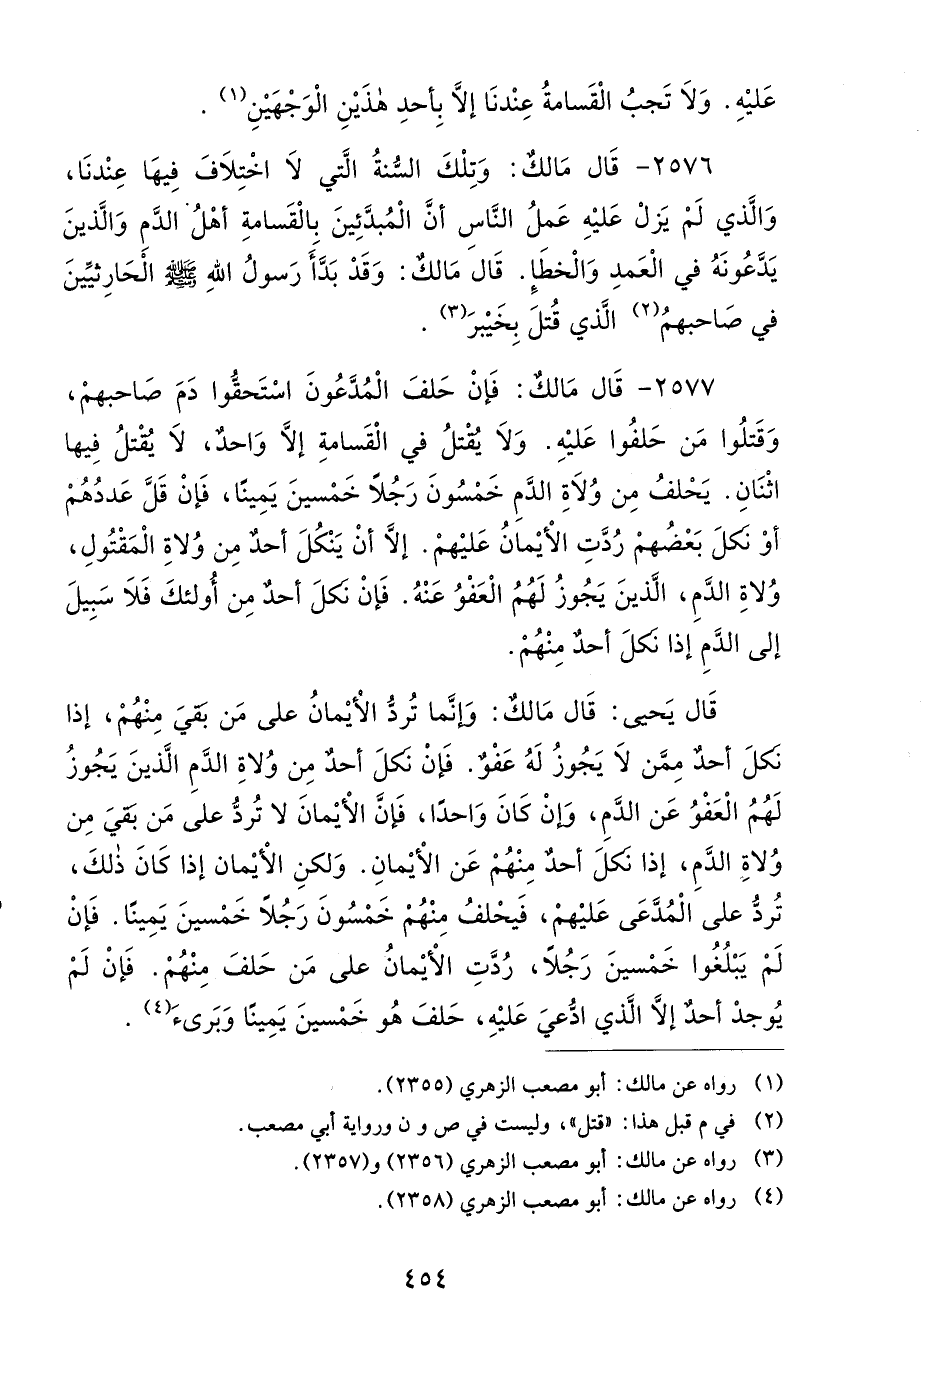 عَلَيْهِ. وَلَا تَجبُ الْقَسامةُ عِنْدنَا إلاَّ بِأحدِ هٰذَيْنِ الْوَجْهَيْنِ(١) .
٢٥٧٦- قَال مَالكٌ: وَتِلْكَ السُّنةُ الَّتي لَا اخْتِلَافَ فِيهَا عِنْدنَا،
وَالَّذي لَمْ يَزلْ عَليْهِ عَملُ النَّاسِ أنَّ الْمُبدَّئِينَ بِالْقَسامةِ أهْلُ الدَّمِ وَالَّذينَ
يَدَّعُونَهُ في الْعَمدِ وَالْخطَإِ. قَال مَالكٌ: وَقَدْ بَدَّأَ رَسولُ اللهِ ﷺ الْحَارِثيِّينَ
في صَاحبهمُ(٢) الَّذي قُتلَ بِخَيْبرَ(٣) .
٢٥٧٧- قَال مَالكٌ: فَإنْ حَلفَ الْمُدَّعُونَ اسْتَحقُّوا دَمَ صَاحبهمْ،
وَقَتلُوا مَن حَلفُوا عَليْهِ. وَلَا يُقْتلُ في الْقَسامةِ إلاَّ وَاحدٌ، لَا يُقْتلُ فِيها
اثْنَانِ. يَحْلفُ مِن وُلَاةِ الدَّمِ خَمْسُونَ رَجُلاً خَمْسينَ يَمِينًا، فَإنْ قَلَّ عَددُهُمْ
أوْ نَكلَ بَعْضُهمْ رُدَّتِ الأْيْمانُ عَليْهِمْ. إلاَّ أنْ يَنْكُلَ أحدٌ مِن وُلَاةِ الْمَقْتُولِ،
وُلَاةِ الدَّمِ، الَّذينَ يَجُوزُ لَهُمُ الْعَفْوُ عَنْهُ. فَإنْ نَكلَ أحدٌ مِن أُولئكَ فَلَا سَبِيلَ
إلى الدَّمِ إذا نَكلَ أحدٌ مِنْهُمْ.
قَال يَحيى: قَال مَالكٌ: وَإنَّما تُردُّ الأْيْمانُ على مَن بَقيَ مِنْهُمْ، إذا
نَكلَ أحدٌ مِمَّن لَا يَجُوزُ لَهُ عَفْوٌ. فَإنْ نَكلَ أحدٌ مِن وُلاةِ الدَّمِ الَّذينَ يَجُوزُ
لَهُمُ الْعَفْوُ عَن الدَّمِ، وَإنْ كَانَ وَاحدًا، فَإنَّ الأْيْمانَ لا تُردُّ على مَن بَقيَ مِن
وُلاةِ الدَّمِ، إذا نَكلَ أحدٌ مِنْهُمْ عَن الأْيْمانِ. وَلكنِ الأْيْمان إذا كَانَ ذٰلكَ،
تُردُّ على الْمُدَّعَى عَليْهِمْ، فَيحْلفُ مِنْهُمْ خَمْسُونَ رَجُلاً خَمْسينَ يَمِينًا. فَإنْ
لَمْ يَبْلُغُوا خَمْسينَ رَجُلاً، رُدَّتِ الأْيْمانُ على مَن حَلفَ مِنْهُمْ. فَإنْ لَمْ
يُوجدْ أحدٌ إلاَّ الَّذي ادُّعيَ عَليْهِ، حَلفَ هُو خَمْسينَ يَمِينًا وَبَرىءَ(٤) .
(١) رواه عن مالك: أبو مصعب الزهري (٢٣٥٥).
(٢) في م قبل هذا: «قتل»، وليست في ص و ن ورواية أبي مصعب.
(٣) رواه عن مالك: أبو مصعب الزهري (٢٣٥٦) و(٢٣٥٧).
(٤) رواه عن مالك: أبو مصعب الزهري (٢٣٥٨).
٤٥٤